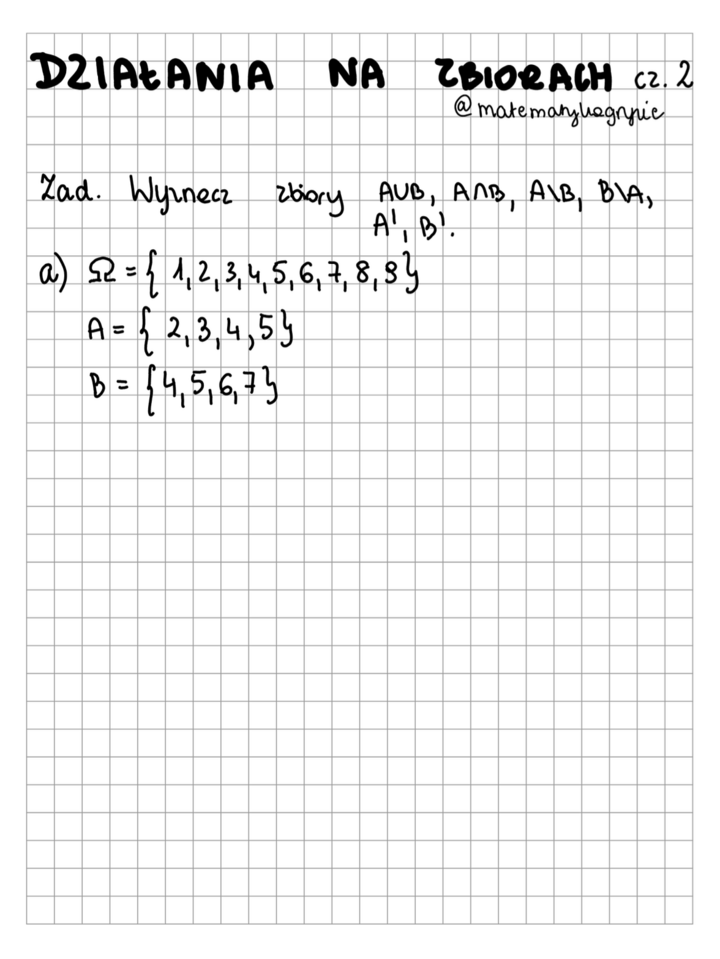 DZIAŁANIA NA ZBIORACH cz. 2
@matematykagrypie
Zad. Wyznacz zbiory A∪B, A∩B, A\B, B\A,
A', B'.
a) Ω = { 1, 2, 3, 4, 5, 6, 7, 8, 9}
A = { 2, 3, 4, 5}
B = {4, 5, 6, 7}